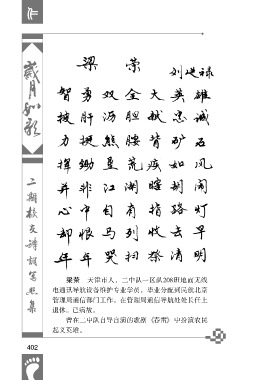 岁月如歌
二期校友诗词写照集
梁荣
刘进禄
智勇双全大英雄
披肝沥胆献忠诚
力挺熊腰背矿石
挥锄垦荒疾如风
并非江湖瞎捌闹
心中自有指路灯
却恨马列收去早
年年哭扫祭清明
梁荣 天津市人,二中队一区队208班地面无线
电通讯导航设备维护专业学员。毕业分配到民航北京
管理局通信部门工作,在管理局通信导航处处长任上
退休。已病故。
曾在二中队自导自演的歌剧《春雷》中扮演农民
起义英雄。
402